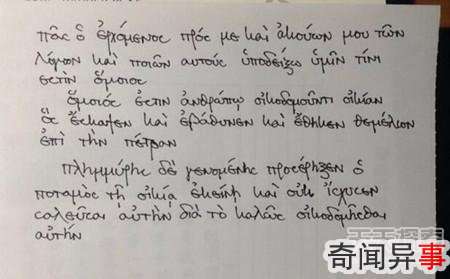 πᾶς ὁ ἐρχόμενος πρός με καὶ ἀκούων μου τῶν
λόγων καὶ ποιῶν αυτους ὑποδείξω ὑμῖν τίνι
ἐστὶν ὅμοιος
ὅμοιός ἐστιν ἀνθρώπῳ οἰκοδομοῦντι οἰκίαν
ὃς ἔσκαψεν καὶ ἐβάθυνεν καὶ ἔθηκεν θεμέλιον
ἐπὶ τὴν πέτραν
πλημμύρης δὲ γενομένης προσέρηξεν ὁ
ποταμὸς τῇ οἰκίᾳ ἐκείνῃ καὶ οὐκ ἴσχυσεν
σαλεῦσαι αὐτὴν διὰ τὸ καλῶς οἰκοδομῆσθαι
αὐτήν
奇闻异事